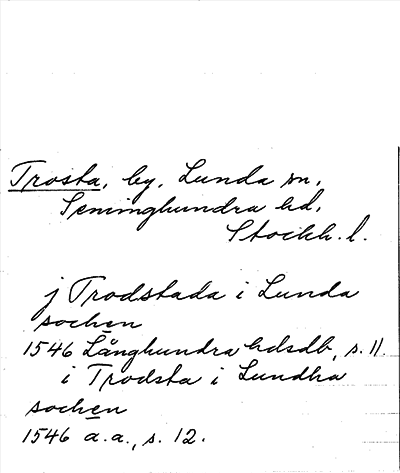 Trosta, by, Lunda sn,
Seminghundra hd,
Stockh. l.
j Trodstada i Lunda
sochen
1546 Långhundra hdsdb, s. 11.
i Trodsta i Lundha
sochen
1546 a.a., s. 12.